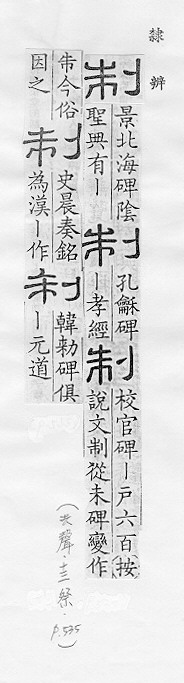 隸辨
制
景北海碑陰
聖典有丨
制
孔龢碑
丨孝經
制
校官碑丨戶六百按
說文制從未碑變作
今俗
因之
制
史晨奏銘
為漢丨作
制
韓勑碑俱
丨元道
(去聲·十三祭·
p.535)